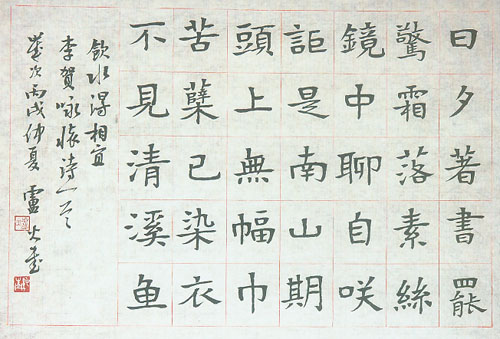 日夕著書罷
驚霜落素絲
鏡中聊自咲
詎是南山期
頭上無幅巾
苦蘗已染衣
不見清溪鱼
飲水得相宜
李賀咏懷诗一首
歲次丙戌仲夏